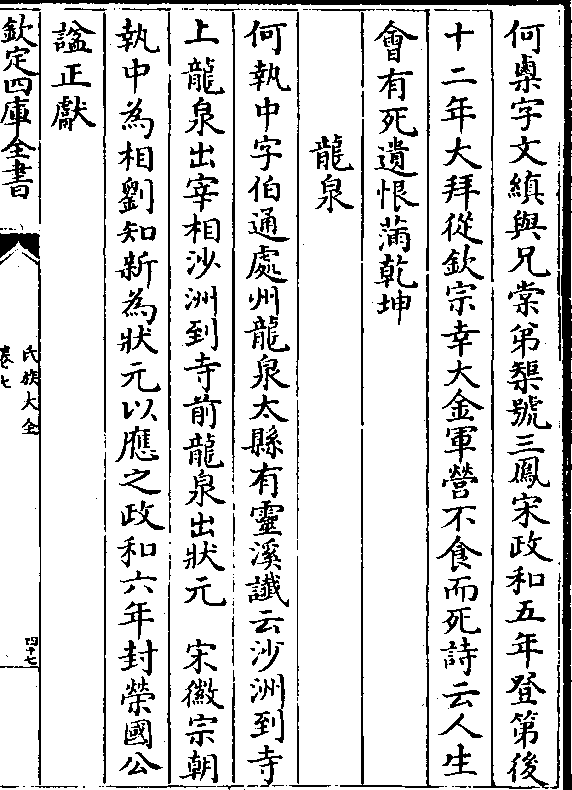 何㮚字文縝與兄棠弟榘號三鳳宋政和五年登第後
十二年大拜從欽宗幸大金軍營不食而死詩云人生
會有死遺恨滿乾坤
龍泉
何執中字伯通處州龍泉太縣有靈溪讖云沙洲到寺
上龍泉出宰相沙洲到寺前龍泉出狀元　宋徽宗朝
執中為相劉知新為狀元以應之政和六年封榮國公
諡正獻
欽定四庫全書
氏族大全
卷七
四十七